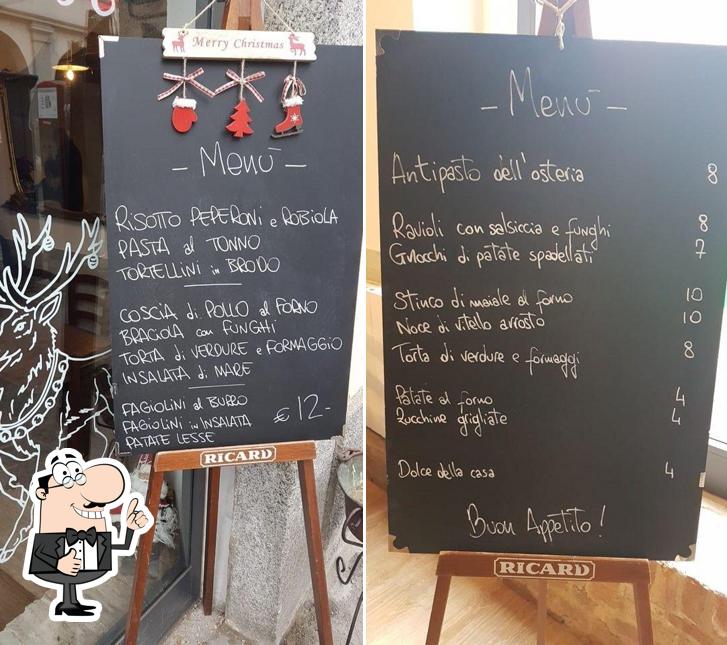 Merry Christmas
– Menù –
RISOTTO PEPERONI e ROBIOLA
PASTA al TONNO
TORTELLINI in BRODO
COSCIA di POLLO al FORNO
BRACIOLA con FUNGHI
TORTA di VERDURE e FORMAGGIO
INSALATA di MARE
FAGIOLINI al BURRO
FAGIOLINI in INSALATA
PATATE LESSE
€ 12.-
RICARD
– Menù –
Antipasto dell'osteria 8
Ravioli con salsiccia e funghi 8
Gnocchi di patate spadellati 7
Stinco di maiale al forno 10
Noce di vitello arrosto 10
Torta di verdure e formaggi 8
Patate al forno 4
Zucchine grigliate 4
Dolce della casa 4
Buon Appetito!
RICARD